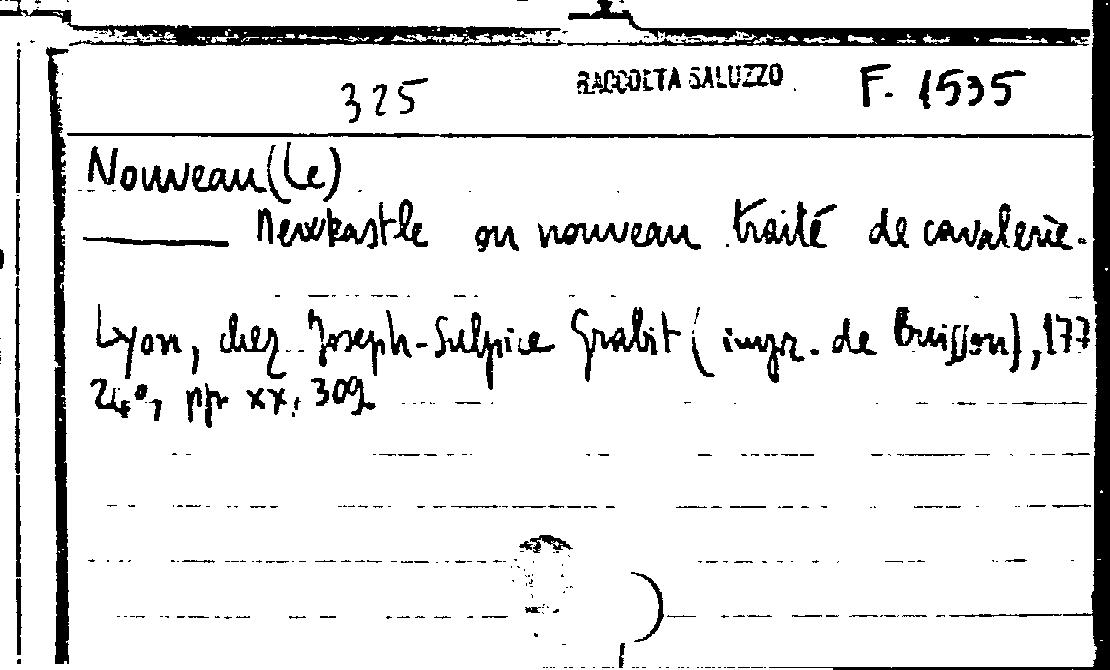 325 RACCOLTA SALUZZO F. 1535
Nouveau (Le)
——— Newkastle ou nouveau traité de cavalerie.
Lyon, chez Joseph-Sulpice Grabit (impr. de Buisson), 177
24°, pp. XX, 309